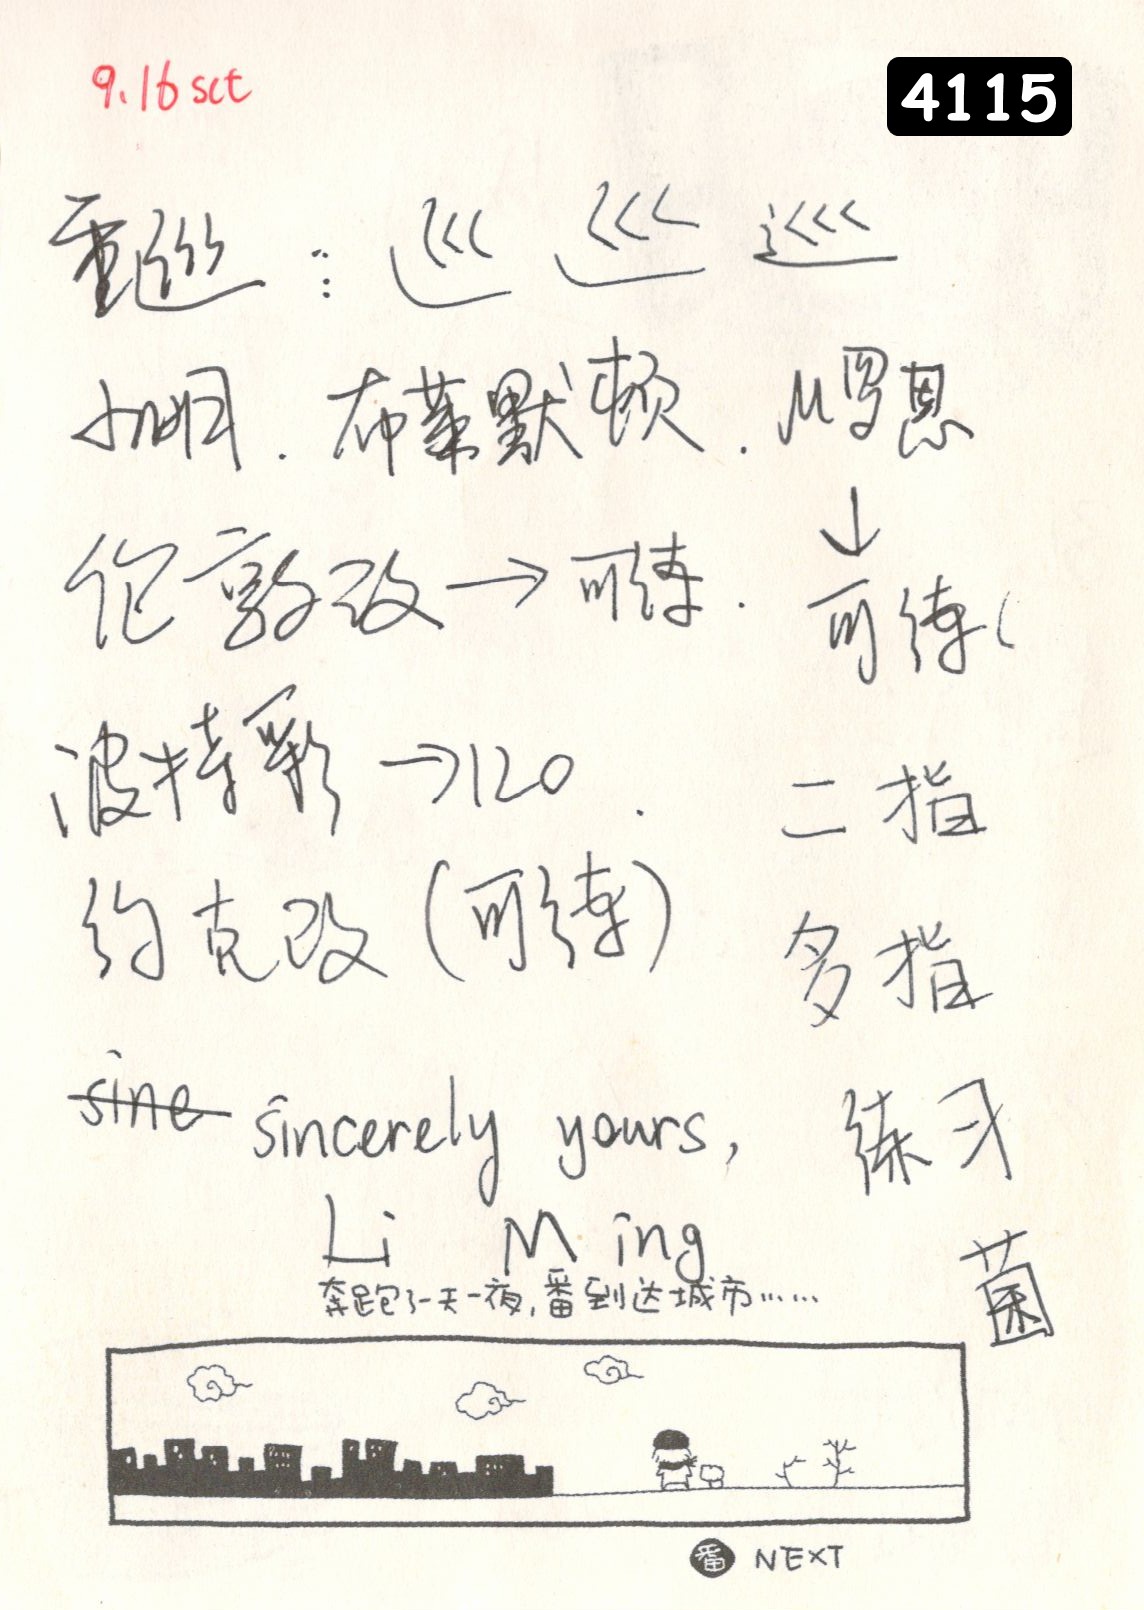 9.16 sct
4115
重巡：巡 巡 巡
小明．布莱默顿．
↓
伦敦改→可练．
可练(
波特彩→120．
二指
约克改（可练）
多指
sine sincerely yours,
练习
Li Ming
菌
奔跑了一天一夜,番到达城市……
番 NEXT